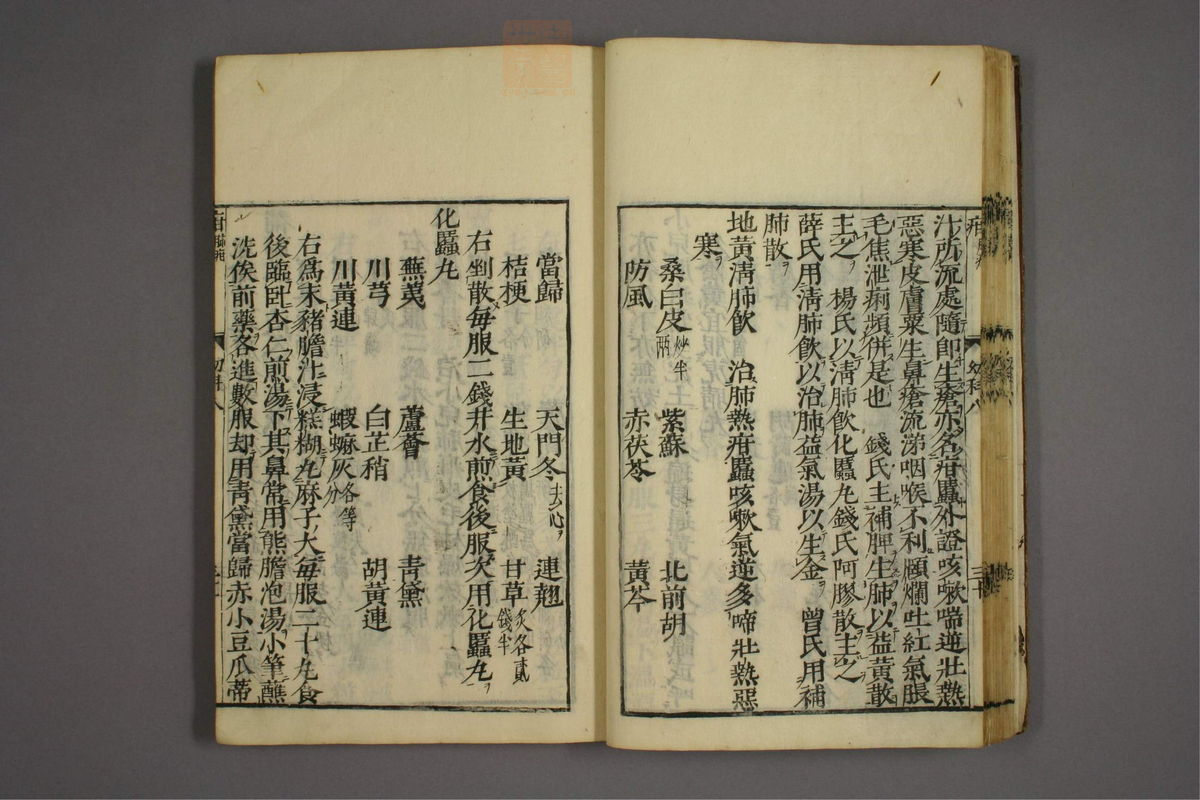 汁所流處隨即生瘡亦名疳䘌外證咳嗽喘逆壯熱
惡寒皮膚粟生鼻瘡流涕咽喉不利頤爛吐紅氣脹
毛焦泄痢頻併是也　錢氏主補脾生肺以益黃散
主之　楊氏以淸肺飮化䘌丸錢氏阿膠散主之
薛氏用淸肺飮以治肺益氣湯以生金　曾氏用補
肺散
地黃淸肺飮　治肺熱疳䘌咳嗽氣逆多啼壯熱惡
寒
桑白皮炒半兩　紫蘇　北前胡
防風　赤茯苓　黃芩
當歸　天門冬去心　連翹
桔梗　生地黃　甘草炙各貳錢半
右剉散每服二錢井水煎食後服次用化䘌丸
化䘌丸
蕪荑　蘆薈　靑黛
川芎　白芷稍　胡黃連
川黃連　蝦蟆灰各等分
右爲末豬膽汁浸糕糊丸麻子大每服二十丸食
後臨臥杏仁煎湯下其鼻常用熊膽泡湯小筆蘸
洗俟前藥各進數服却用靑黛當歸赤小豆瓜蒂
幼科八
三十